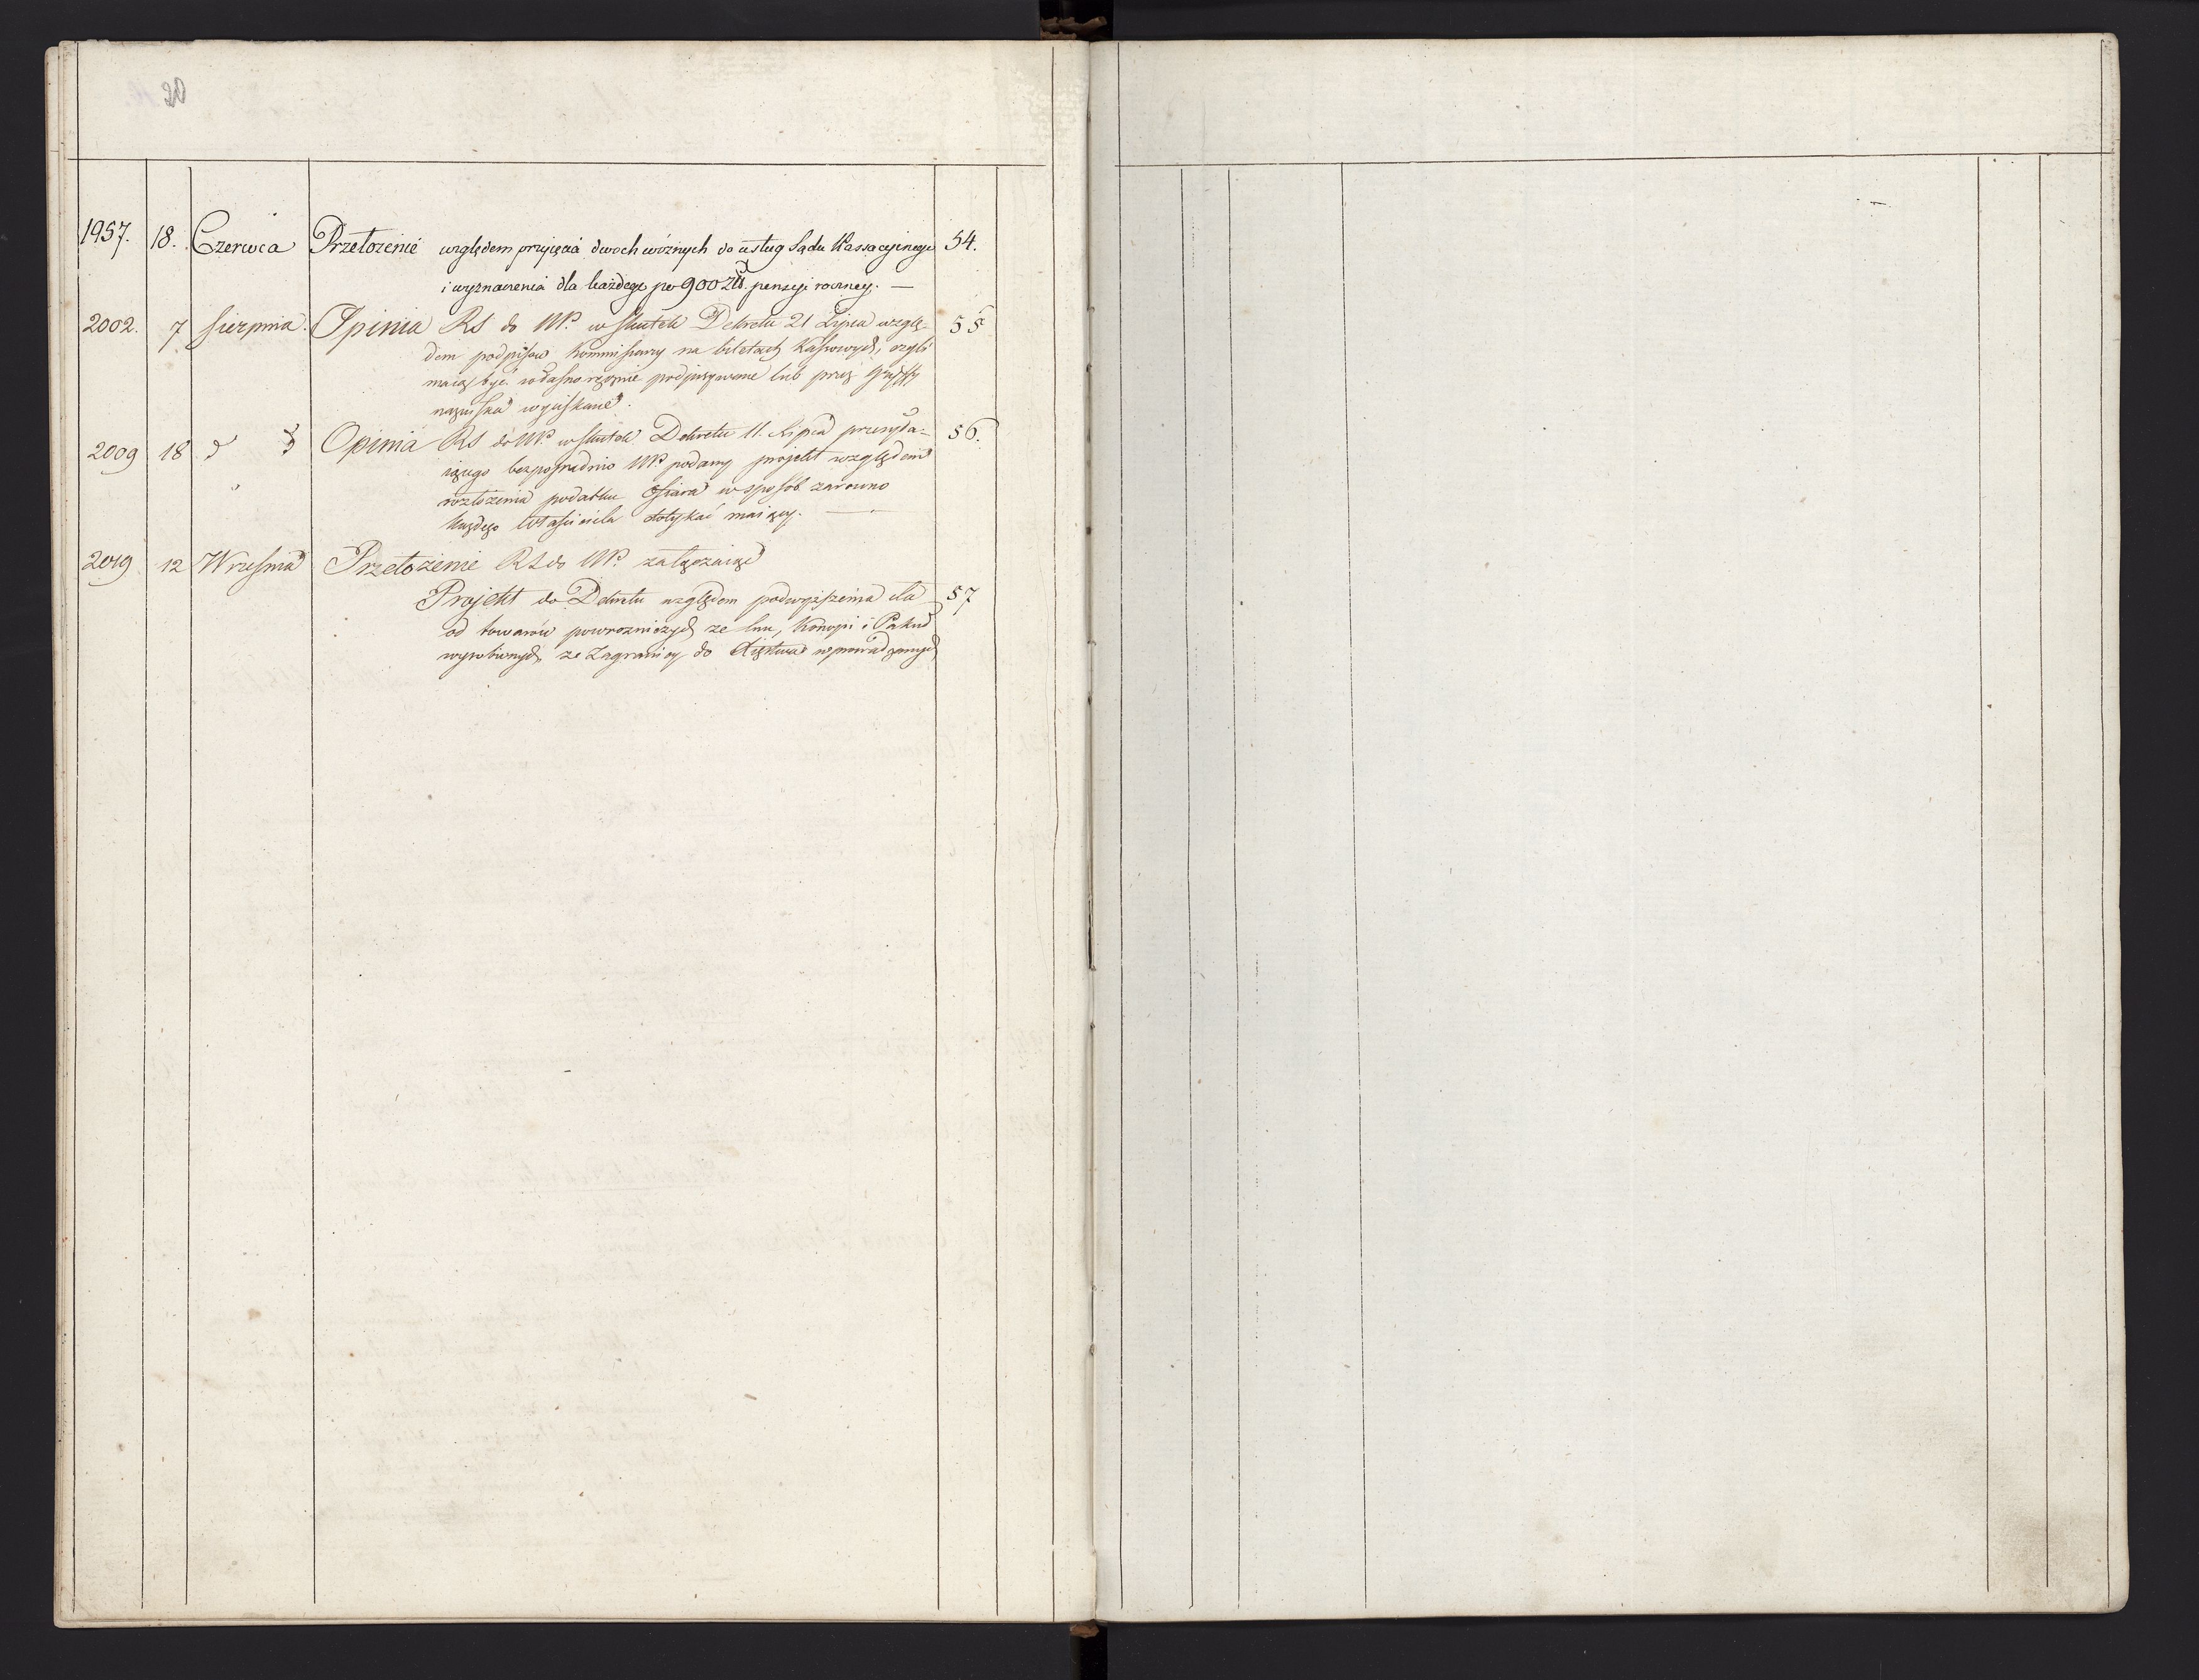 20
1957. 18. Czerwca Przełożenié względem przyięcia dwoch woźnych do usług Sądu Kassacyinego 54.
i wyznaczenia dla każdego po 900 Złł. pensyi roczney. —
2002. 7 Sierpnia. Opinia RS do NP. w skutek Dekretu 21 Lipca wzglę- 55
dem podpisow Kommissarzy na biletach Kassowych, czyli
maią być własnoręcznie podpisywane lub przez
nazwiska wyciskane.
2009 18 d d Opinia RS do NP. w skutek Dekretu 11. Lipca przesyła= 56.
iącego bezpośrednio NP. podany projekt względem
rozłożenia podatku Ofiara w sposób zarowno
każdego Właściciela dotykać maiący. —
2019 12 Września Przełożenie RS do NP. załączaiące
Projekt do Dekretu względem podwyższenia cła 57
od towarów powrozniczych ze lnu, Konopi i Pakuł
wyrobionych, ze Zagranicy do Xięstwa wprowadzanych